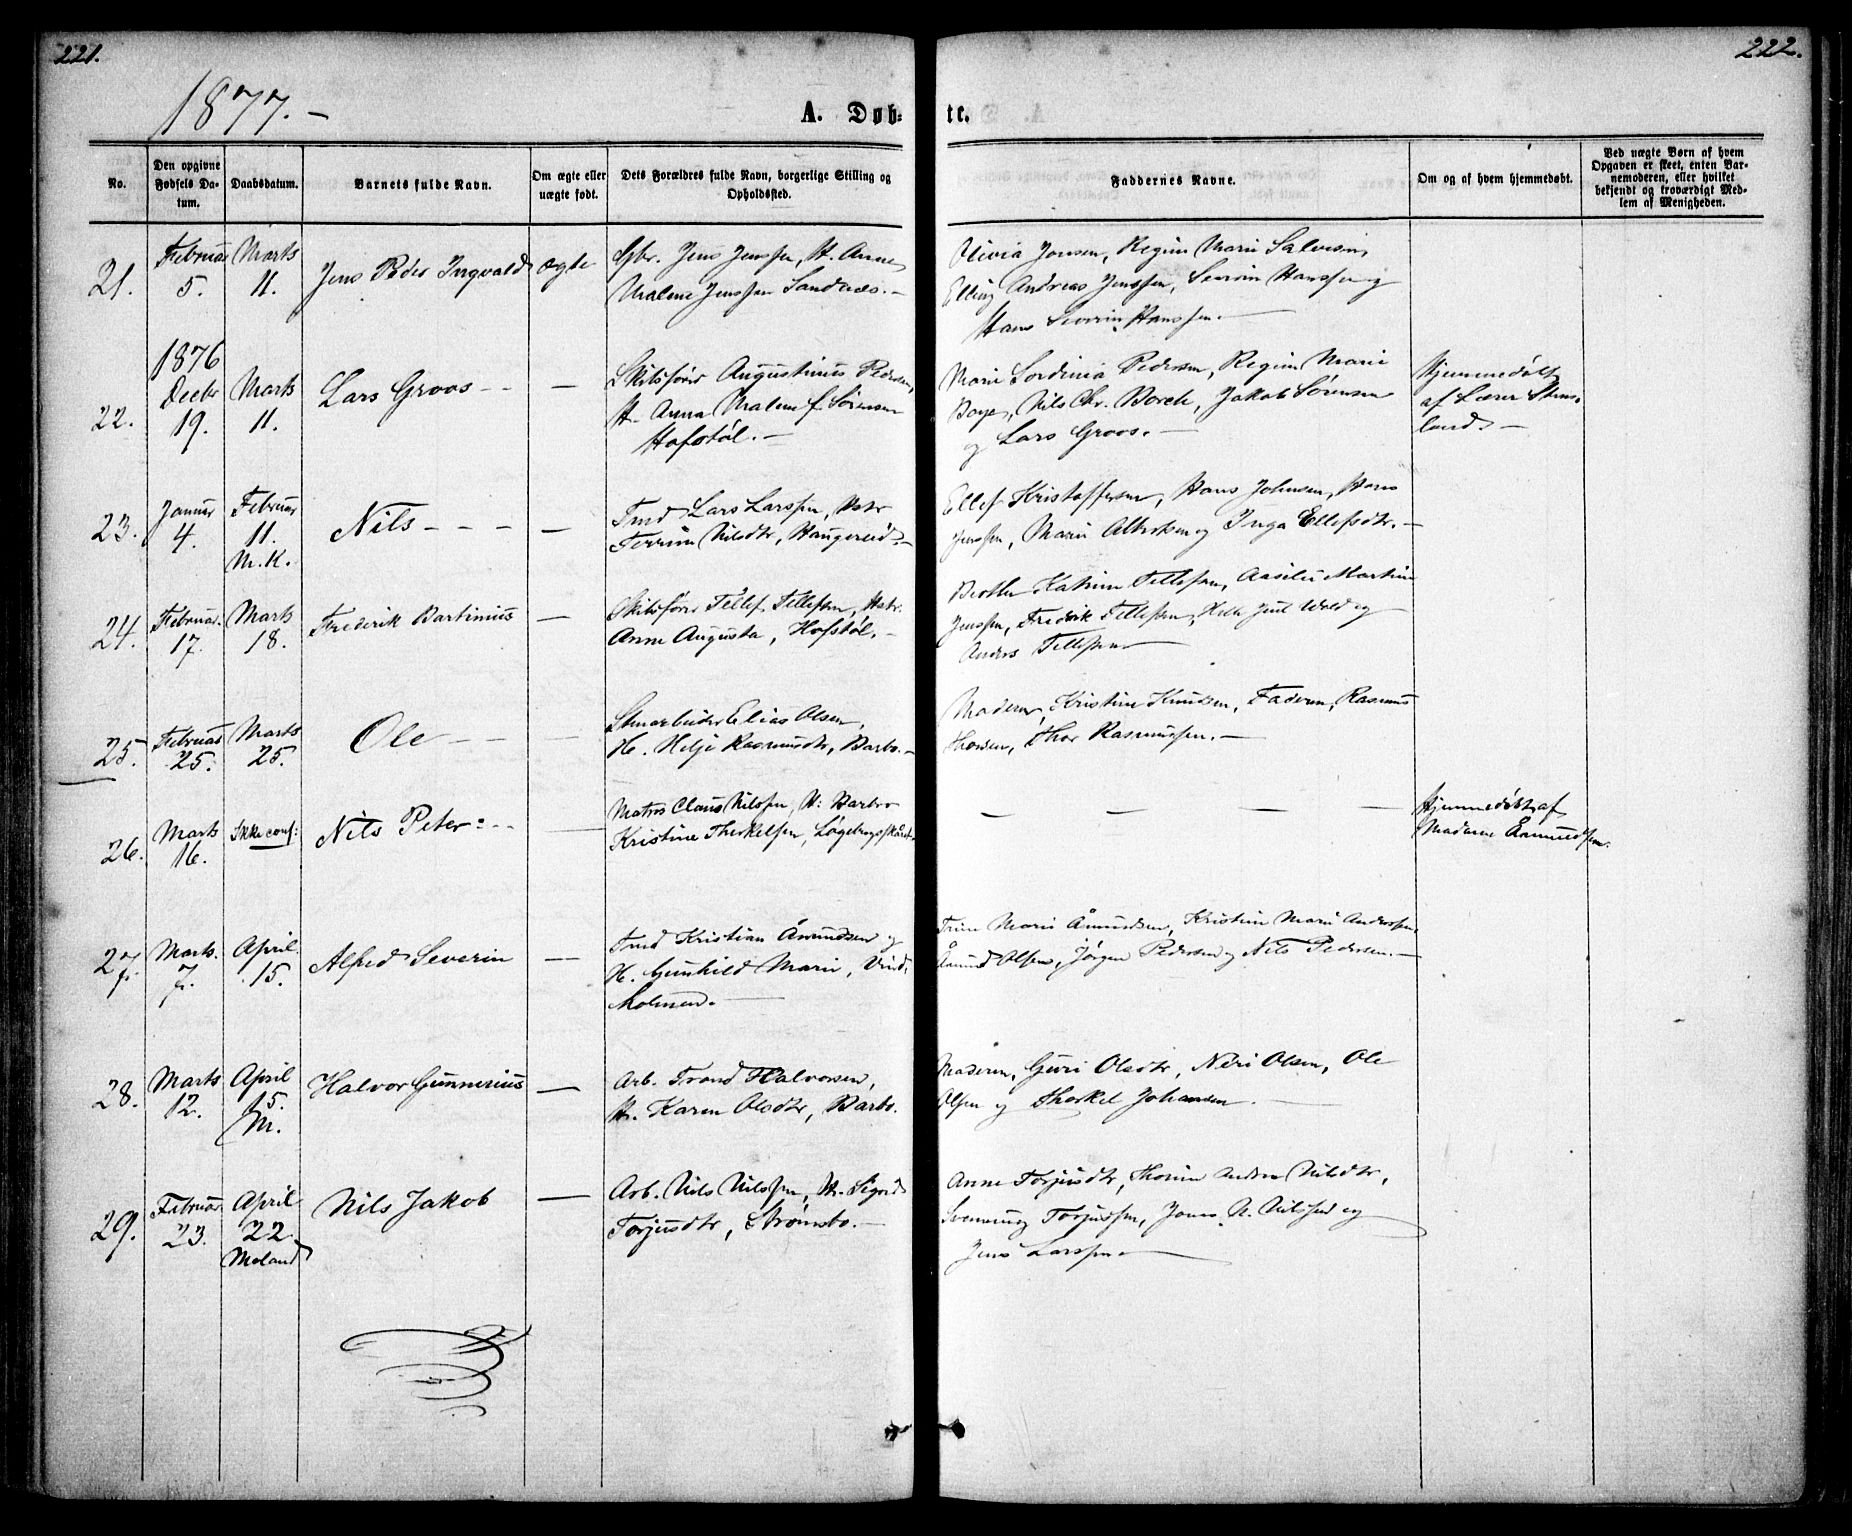 221.
222.
1877.-
A. Døb-
te.
No.
Den opgivne
Fødsels Da-
tum.
Daabsdatum.
Barnets fulde Navn.
Om ægte eller
uægte født.
Dets Forældres fulde Navn, borgerlige Stilling og
Opholdssted.
Faddernes Navne.
Om og af hvem hjemmedøbt.
Ved uægte Børn af hvem
Opgaven er skeet, enten Bar-
nemoderen, eller hvilket
bekjendt og troværdigt Med-
lem af Menigheden.
21.
Februar
5.
Marts
11.
Jens Peder Ingvald
ægte
Gbr. Jens Jenssen, H. Anne
Malene Jenssen Sandnes.-
Olivia Jensen, Regine Marie Salvesen,
Elling Andreas Jenssen, Severin Hanssen og
Hans Severin Hanssen.-
22.
1876
Decbr
19.
Marts
11.
Lars Groos - -
-
Skibsfører Augustinus Pedersen,
H. Anna Malene f. Sørensen
Hofstøl.-
Marie Pedersen, Regine Marie
Nils Chr. Borch, Jakob Sørensen
og Lars Groos.-
Hjemmedøbt
af Lærer Stens-
land.-
23.
Januar
4.
Februar
11.
M.K.
Nils - - -
-
Tmd Lars Larssen, Hstr
Nilsdtr, Haugereid.-
Ellef Kristoffersen, Hans Johnsen, Hans
Jenssen, Marie og Inga Ellefsdtr.-
24.
Februar.
17.
Marts
18.
Frederik Bartinius
-
Skibsfører Tellef Tellefsen, Hstr.
Anne Augusta, Hofstøl.-
Berthe Katrine Tellefsen, Aasilie Martine
Jenssen, Fredrik Tellefsen, Juul Wold og
Anders Tellefsen
25.
Februar
25.
Marts
25.
Ole - -
Stenarbeider Elias Olsen,
H. Helje Rasmusdtr, Barbo.-
Moderen, Kristine Knudsen, Faderen, Rasmus
Thorsen, Thor Rasmussen.-
26.
Marts
16.
Ikke conf:
Nils Peter:--
-
Matros Claus Nilssen, H: Barbro
Kristine Therkelsen,
- - - -
Hjemmedøbt af
Madame Aamundsen.
27.
Marts.
7.
April.
15.
Alfred Severin
-
Tmd Kristian Åmundsen og
H. Gunhild Marie, Vind-
holmen.-
Trine Marie Åmundsen, Kristine Marie Anderssen,
Åmund Olsen, Jørgen Pedersen og Nils Pedersen.-
28.
Marts
12.
April
15.
M.
Halvor Gunnerius
-
Arb. Trond Halvorsen,
H. Karen Olsdtr, Barbo.
Moderen, Guri Olsdtr, Neri Olsen, Ole
Olsen og Therkel Johansen.-
29.
Februar
23.
April
22.
Moland
Nils Jakob
-
Arb. Nils Nilssen, H. Sigrid
Torjusdtr, Strømsbo.-
Anne Torjusdtr, Thorine Andrea Nilsdtr,
Svenning Torjussen, Jens N. Nilssen og
Jens Larssen